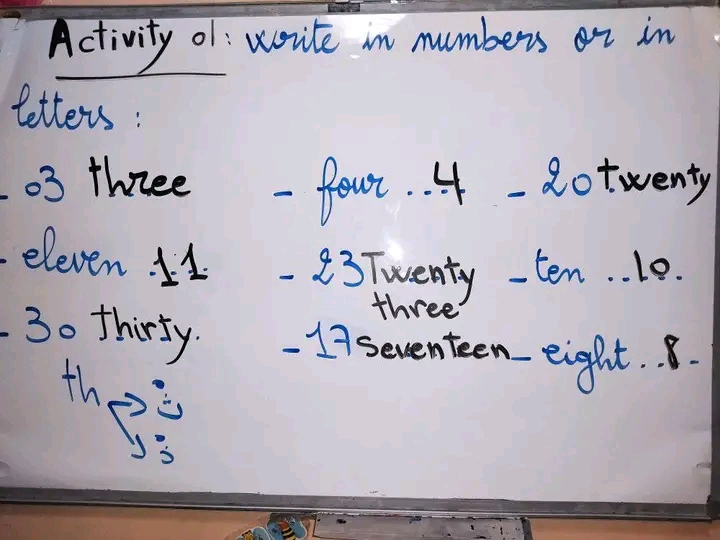 Activity 01: write in numbers or in
letters :
- 03 three - four ..4.. - 20 twenty
- eleven .11. - 23 Twenty - ten ..10.
three
- 30 thirty. - 17 seventeen - eight ..8.-
th ث
ذ